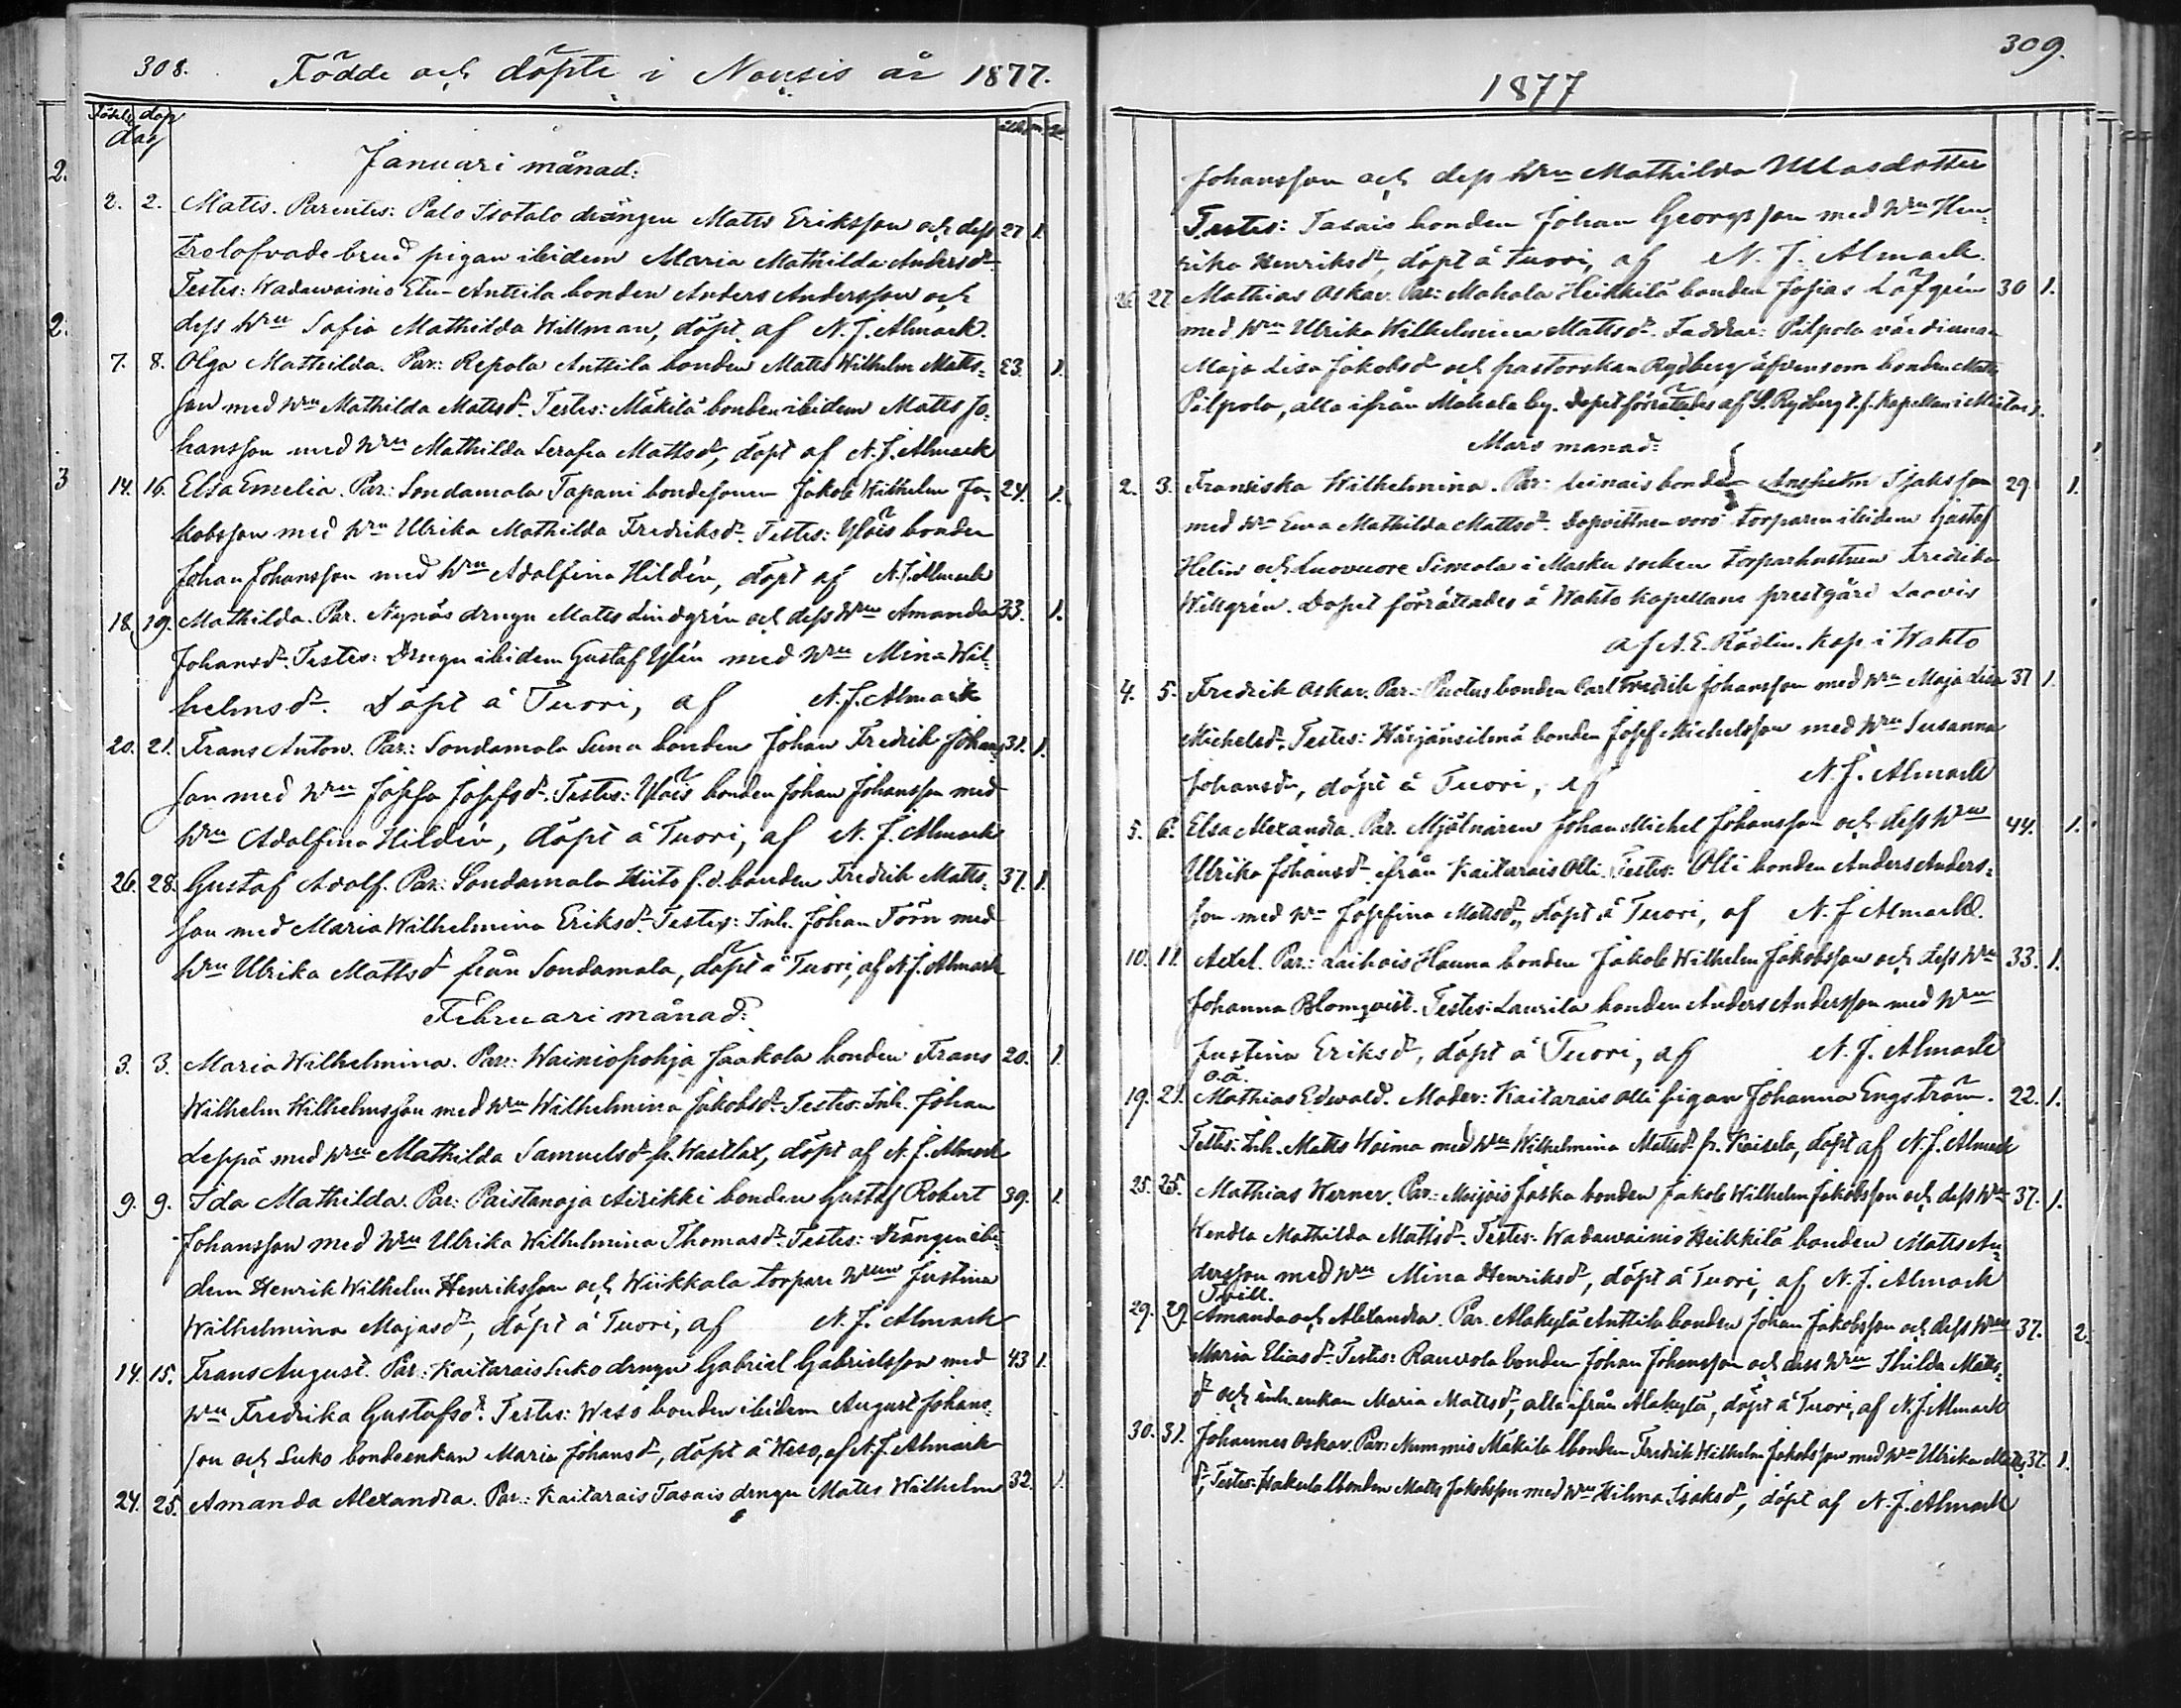 308. Födde och döpte i Nousis år 1877.
Födelse dop
dag
Januari månad:
2. 2. Matts. Parentes: Palo Isotalo drängen Matts Eriksson och dess 27 1.
trolofvade brud pigan ibidem Maria Mathilda Andersdr
Testes: Wadawainio Etu-Anttila bonden Anders Andersson och
dess hru Sofia Mathilda Willman, döpt af N. J. Almark.
7. 8. Olga Mathilda. Par: Repola Anttila bonden Matts Wilhelm Matts= 23. 1.
son med hru Mathilda Mattsdr. Testes: Mäkilä bonden ibidem Matts Jo-
hansson med hru Mathilda Serafia Mattsdr, döpt af N. J. Almark
14. 16. Elsa Emelia. Par: Sondamala Tapani bondesonen Jakob Wilhelm Ja- 24. 1.
kobsson med hru Ulrika Mathilda Fredriksdr. Testes: Yläis bonden
Johan Johansson med hru Adolfina Hildén, döpt af N. J. Almark
18. 19. Mathilda. Par. Nynäs drngn Matts Lindgrén och dess hru Amanda 33. 1.
Johansdr. Testes: Drngn ibidem Gustaf Ylén med hru Mina Wil-
helmsdr. Döpt å Tuori, af N. J. Almark
20. 21. Frans Anton. Par: Sondamala Suna bonden Johan Fredrik Johans= 31. 1.
son med hru Josefa Josefsdr. Testes: Yläis bonden Johan Johansson med
hru Adolfina Hildén, döpt å Tuori, af N. J. Almark
26. 28. Gustaf Adolf. Par: Sondamala Hiito f.d. bonden Fredrik Matts= 37. 1.
son med Maria Wilhelmina Eriksdr. Testes: Inh. Johan Törn med
hru Ulrika Mattsdr från Sondamala, döpt å Tuori, af N. J. Almark
Februari månad:
3. 3. Maria Wilhelmina. Par: Wainiopohja Jaakola bonden Frans 20. 1.
Wilhelm Wilhelmsson med hru Wilhelmina Jakobsdr. Testes: Inh. Johan
Leppä med hru Mathilda Samuelsdr fr. Wastlax, döpt af N. J. Almark
9. 9. Ida Mathilda. Par: Paistanoja Airikki bonden Gustaf Robert 39. 1.
Johansson med hru Ulrika Wilhelmina Thomasdr. Testes: Drängen ibi-
dem Henrik Wilhelm Henriksson och Wiikkala torpare hrun Justina
Wilhelmina Majasdr, döpt å Tuori, af N. J. Almark
14. 15. Frans August. Par: Kaitarais Suko drngn Gabriel Gabrielsson med 43 1.
hru Fredrika Gustafsdr. Testes: Weso bonden ibidem August Johans-
son och Suko bondeenkan Maria Johansdr, döpt å Weso, af N. J. Almark
24. 25. Amanda Alexandra. Par: Kaitarais Tasais drngn Matts Wilhelm 32. 1.
309.
1877
Johansson och dess hru Mathilda Ullasdotter
Testes: Tasais bonden Johan Georgsson med hru Hen-
rika Henriksdr, döpt å Tuori, af N. J. Almark.
26. 27. Mathias Oskar. Par: Mahala Heikkilä bonden Josias Löfgrén 30 1.
med hru Ulrika Wilhelmina Mattsdr. Faddrar: Pilpola värdinnan
Maja Lisa Jakobsdr och pastorskan Rydberg äfvensom bonden Matts
Pilpola, alla ifrån Mahala by. Dopet förrättades af S. Rydberg t.f. Kapellan i
Mars månad:
2. 3. Fransiska Wilhelmina. Par: Leinais bonden Anshelm Isaksson 29 1.
med hru Eva Mathilda Mattsdr. Dopvittnen voro torparen ibidem Gustaf
Helin och Luovuore Simola i Masku socken torparhustrun Fredrika
Willgrén. Dopet förrättades å Wahto Kapellans prestgård Laavis
af A. E. Rödlin. Kap i Wahto
4. 5. Fredrik Oskar. Par: Puctus bonden Carl Fredrik Johansson med hru Maja Lisa 37 1.
Michelsdr. Testes: Härjänsilmä bonden Josef Michelsson med hru Susanna
Johansdr, döpt å Tuori, af N. J. Almark
5. 6. Elsa Alexandra. Par. Mjölnaren Johan Michel Johansson och dess hru 44. 1.
Ulrika Johansdr ifrån Kaitarais Olli. Testes: Olli bonden Anders Anders=
son med hru Josefina Mattsdr, döpt å Tuori, af N. J. Almark.
10. 11. Axel. Par: Laihois Hanna bonden Jakob Wilhelm Jakobsson och dess hru 33. 1.
Johanna Blomqvist. Testes: Laurila bonden Anders Andersson med hru
Justina Eriksdr, döpt å Tuori, af N. J. Almark
o.ä.
19. 21. Mathias Edvald. Moder: Kaitarais Olli pigan Johanna Engström. 22. 1.
Testes: Inh. Matts Woima med hru Wilhelmina Mattsdr fr. Kaisela, döpt af N. J. Almark
25. 25. Mathias Werner. Par: Moijois Jaska bonden Jakob Wilhelm Jakobsson och dess hru 37. 1.
Hendla Mathilda Mattsdr. Testes: Wadawainio Heikkilä bonden Matts An-
dersson med hru Mina Henriksdr, döpt å Tuori, af N. J. Almark
Tvill.
29. 29. Amanda och Alexandra. Par. Alakylä Anttila bonden Johan Jakobsson och dess hru 37. 2.
Maria Eliasdr. Testes: Rauvola bonden Johan Johansson och dess hru Thilda Matts-
dr och inh. enkan Maria Mattsdr, alla ifrån Alakylä, döpt å Tuori, af N. J. Almark
30. 31. Johannes Oskar. Par: Nummis Mäkilä bonden Fredrik Wilhelm Jakobsson med hru Ulrika Matts- 37. 1.
dr, Testes: Hakula bonden Matts Jakobsson med hru Hilma Isaksdr, döpt af N. J. Almark